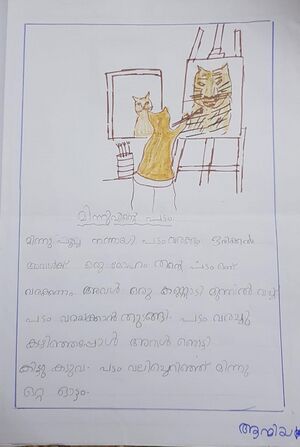 മിന്നുവിന്റെ പടം
മിന്നു പൂച്ച നന്നായി പടം വരക്കും. ഒരിക്കൽ
അവൾക്ക് ഒരു മോഹം തന്റെ പടം ഒന്ന്
വരക്കണം. അവൾ ഒരു കണ്ണാടി മുന്നിൽ വച്ച്
പടം വരയ്ക്കാൻ തുടങ്ങി. പടം വരച്ചു
കഴിഞ്ഞപ്പോൾ അവൾ ഞെട്ടി
കിട്ടു കടുവ. പടം വലിച്ചെറിഞ്ഞ് മിന്നു
ഒറ്റ ഓട്ടം.